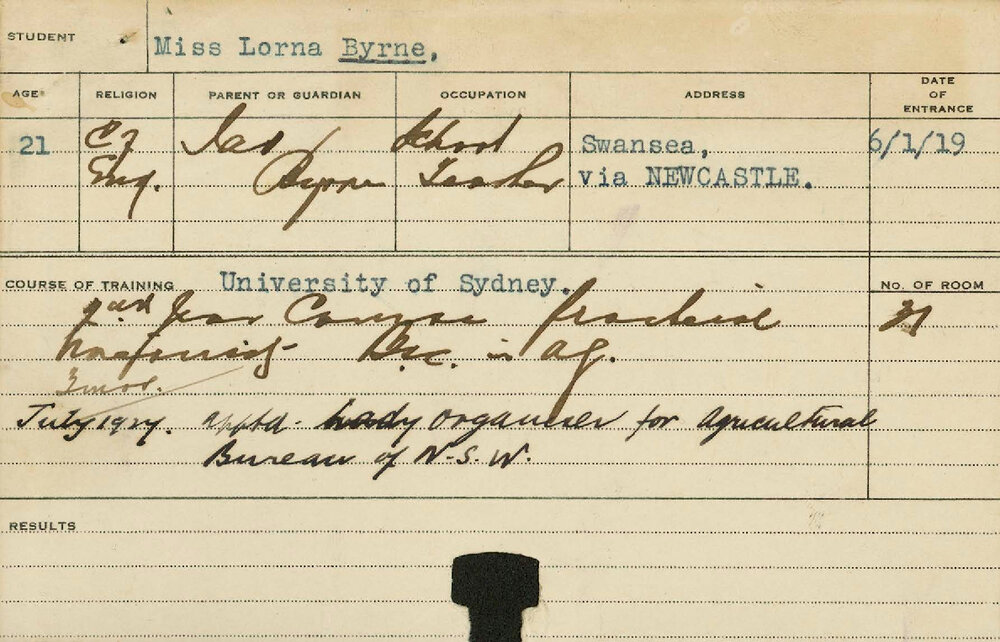 STUDENT Miss Lorna Byrne,
AGE RELIGION PARENT OR GUARDIAN OCCUPATION ADDRESS DATE OF ENTRANCE
21 C of Jas School Swansea, 6/1/19
Eng. Byrne Teacher via NEWCASTLE.
COURSE OF TRAINING University of Sydney. No. OF ROOM
2nd Year Course Practical 21
B.Sc. in Ag.
3 mos.
July 1927. apptd. Lady organiser for Agricultural
Bureau of N.S.W.
RESULTS